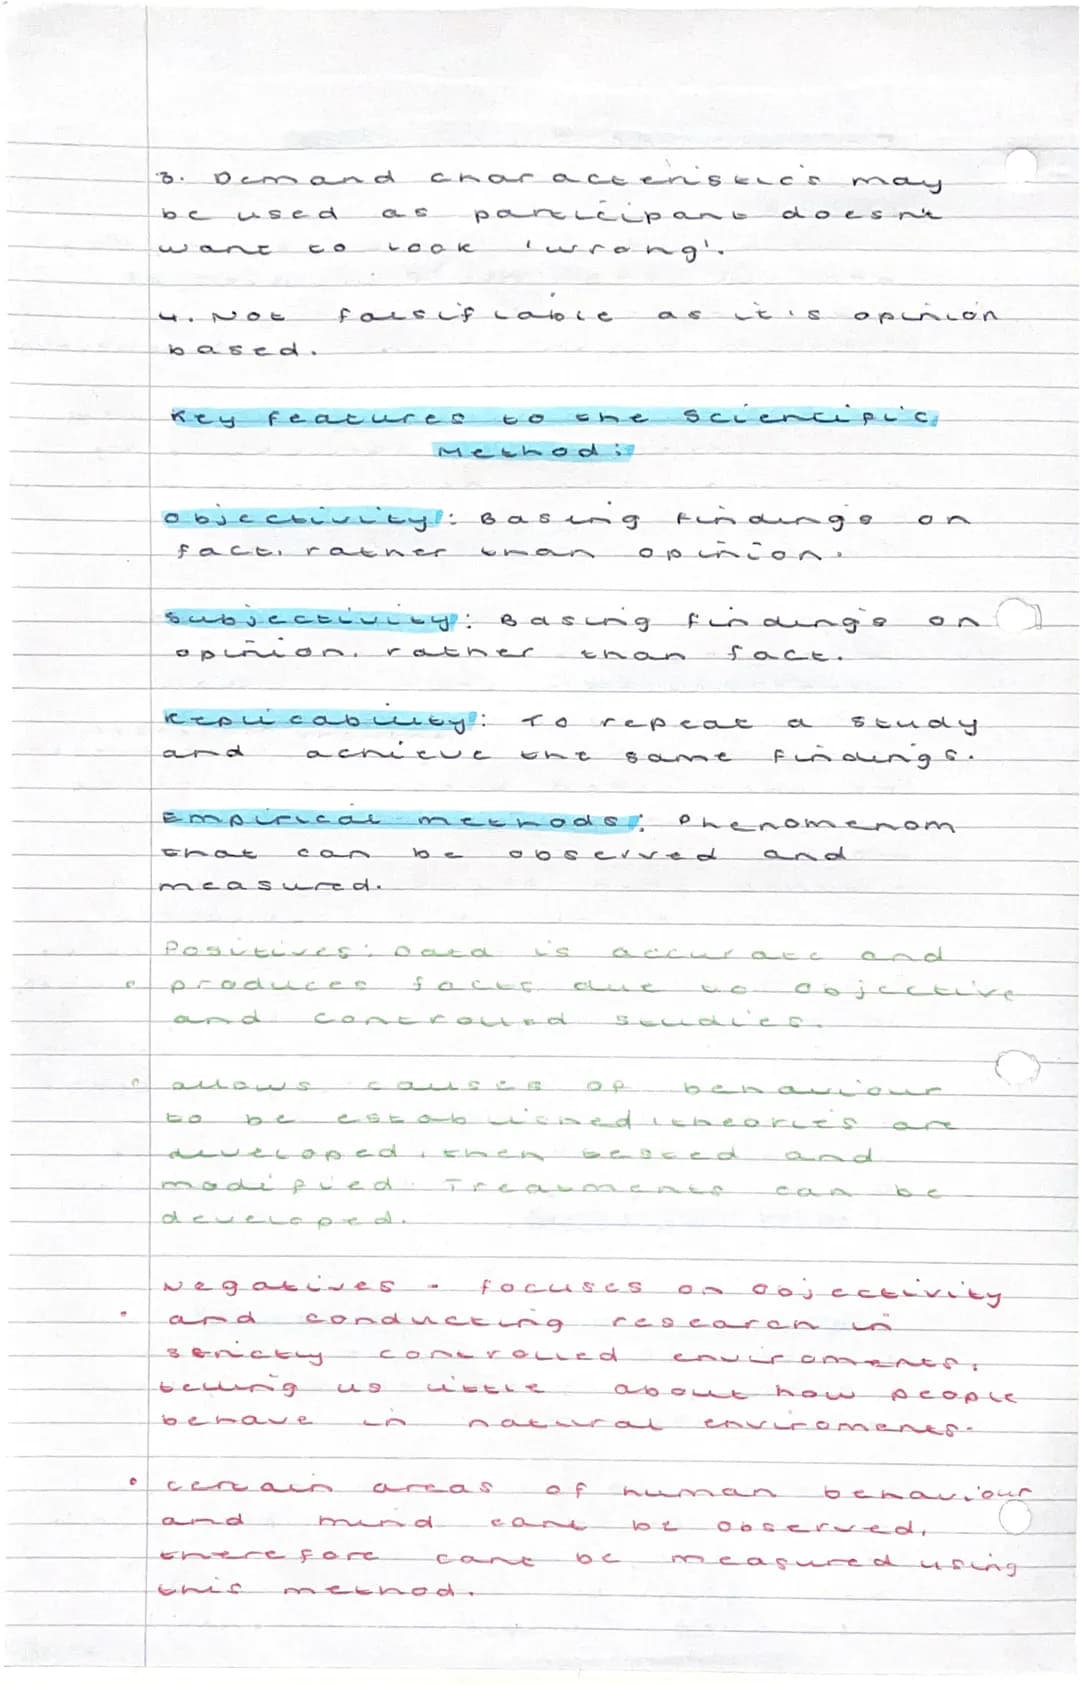 3. Demand characteristics may
be used as participant doesn't
want to look 'wrong'.
4. Not falsifiable as it is opinion
based.
Key features to the scientific
Method:
Objectivity: Basing findings on
fact, rather than opinion.
Subjectivity: Basing findings on
opinion, rather than fact.
Replicability: To repeat a study
and achieve the same findings.
Empirical methods: Phenomenom
that can be observed and
measured.
Positives: Data is accurate and
• produces facts due to objective
and controlled studies.
• allows causes of behaviour
to be established, theories are
developed, then tested and
modified. Treatments can be
developed.
Negatives - focuses on objectivity
• and conducting research in
strictly controlled enviroments,
telling us little about how people
behave in natural enviroments.
• certain areas of human behaviour
and mind cant be observed,
therefore cant be measured using
this method.